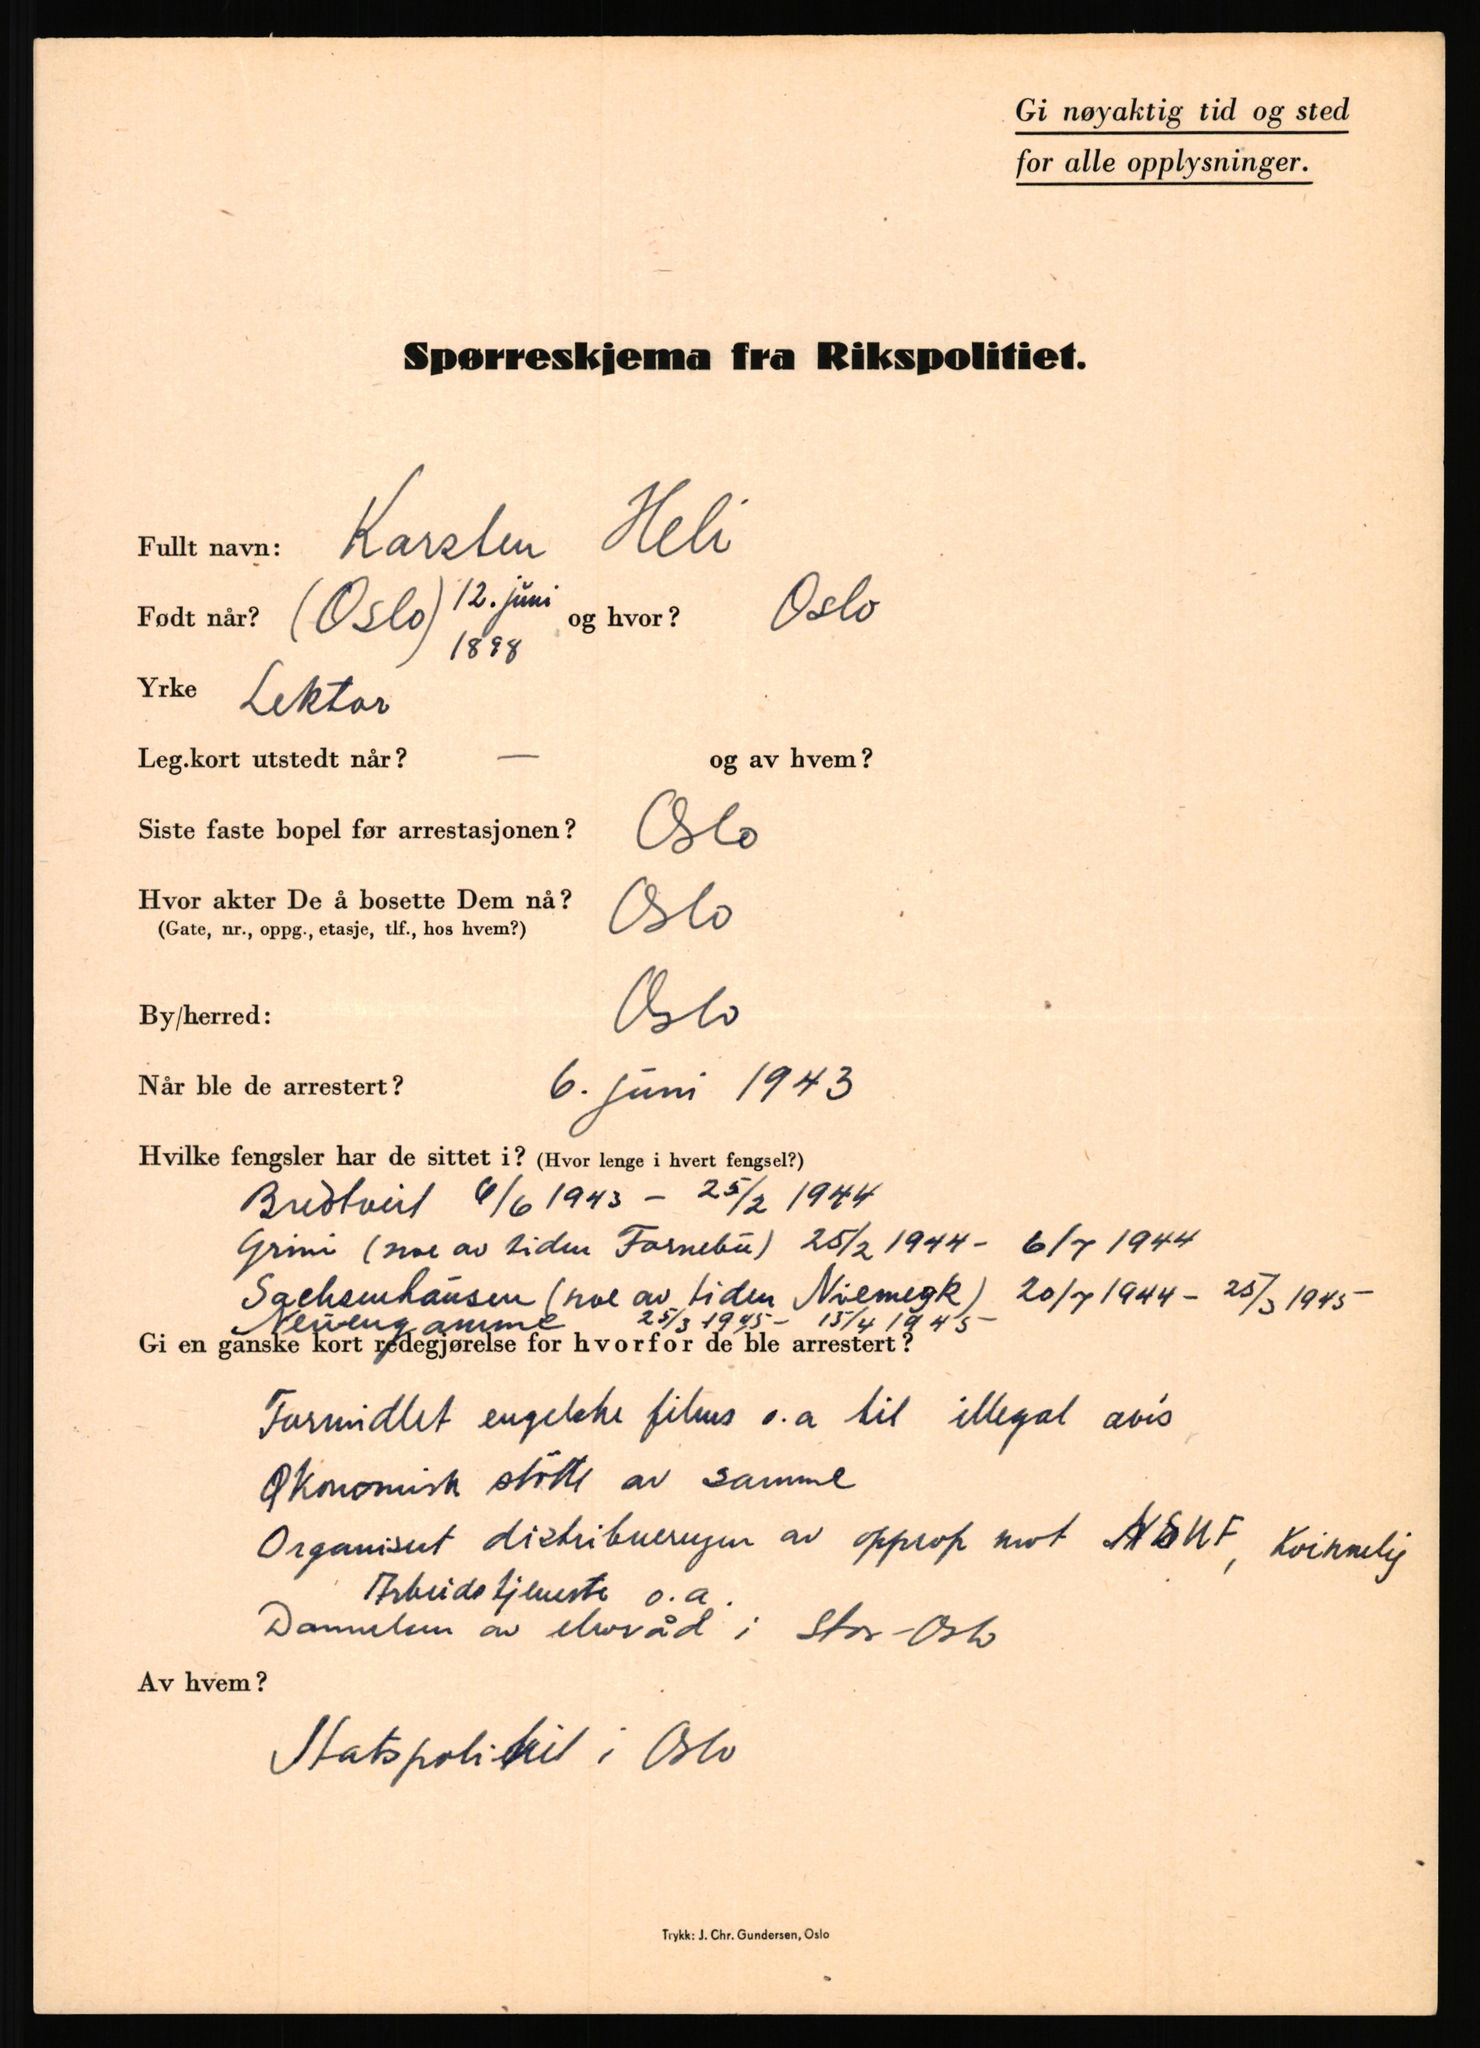 Gi nøyaktig tid og sted
for alle opplysninger.
Spørreskjema fra Rikspolitiet.
Fullt navn: Karsten Heli
Født når? (Oslo) 12. juni 1898 og hvor? Oslo
Yrke Lektor
Leg.kort utstedt når? — og av hvem?
Siste faste bopel før arrestasjonen? Oslo
Hvor akter De å bosette Dem nå? Oslo
(Gate, nr., oppg., etasje, tlf., hos hvem?)
By/herred: Oslo
Når ble de arrestert? 6. juni 1943
Hvilke fengsler har de sittet i? (Hvor lenge i hvert fengsel?)
Bredtveit 6/6 1943 - 25/2 1944
Grini (noe av tiden Fornebu) 25/2 1944 - 6/7 1944
Sachsenhausen (noe av tiden Niemegk) 20/7 1944 - 25/3 1945
Neuengamme 25/3 1945 - 15/4 1945
Gi en ganske kort redegjørelse for hvorfor de ble arrestert?
Formidlet engelske films o.a til illegal avis
Økonomisk støtte av samme
Organisert distribueringen av opprop mot NSUF, Kvinnelig
Arbeidstjeneste o.a.
Dannelsen av elevråd i Stor-Oslo
Av hvem?
Statspolitiet i Oslo
Trykk: J. Chr. Gundersen, Oslo